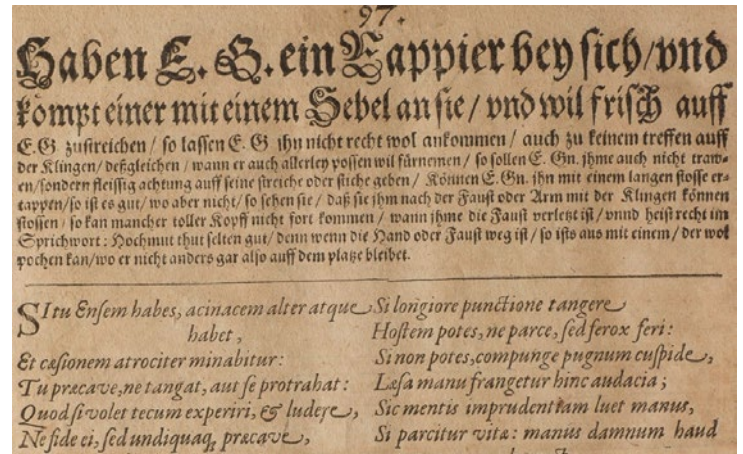 97.
Haben E. G. ein Rappier bey sich/vnd
kompt einer mit einem Sebel an sie / vnd wil frisch auff
E.G. zustreichen / so lassen E. G ihn nicht recht wol ankommen / auch zu keinem treffen auff
der Klingen / deßgleichen / wann er auch allerley possen wil fürnemen / so sollen E. Gn. jhme auch nicht traw-
en/sondern fleissig achtung auff seine streiche oder stiche geben / Können E. Gn. jhn mit einem langen stosse er-
tappen/so ist es gut/ wo aber nicht/ so sehen sie / daß sie jhm nach der Faust oder Arm mit der Klingen können
stossen / so kan mancher toller Kopff nicht fort kommen / wann jhme die Faust verletzt ist / vnnd heist recht im
Sprichwort : Hochmut thut selten gut/ denn wenn die Hand oder Faust weg ist / so ists aus mit einem / der wol
pochen kan/wo er nicht anders gar also auff dem platze bleibet.
SI tu Ensem habes, acinacem alter atque
habet,
Et cæsionem atrociter minabitur:
Tu præcave, ne tangat, aut se protrahat:
Quod si volet tecum experiri, & ludere,
Ne fide ei, sed undiquaq; præcave,
Si longiore punctione tangere
Hostem potes, ne parce, sed ferox feri:
Si non potes, compunge pugnum cuspide,
Læsa manu frangetur hinc audacia;
Sic mentis imprudentiam luet manus,
Si parcitur vitæ: manus damnum haud